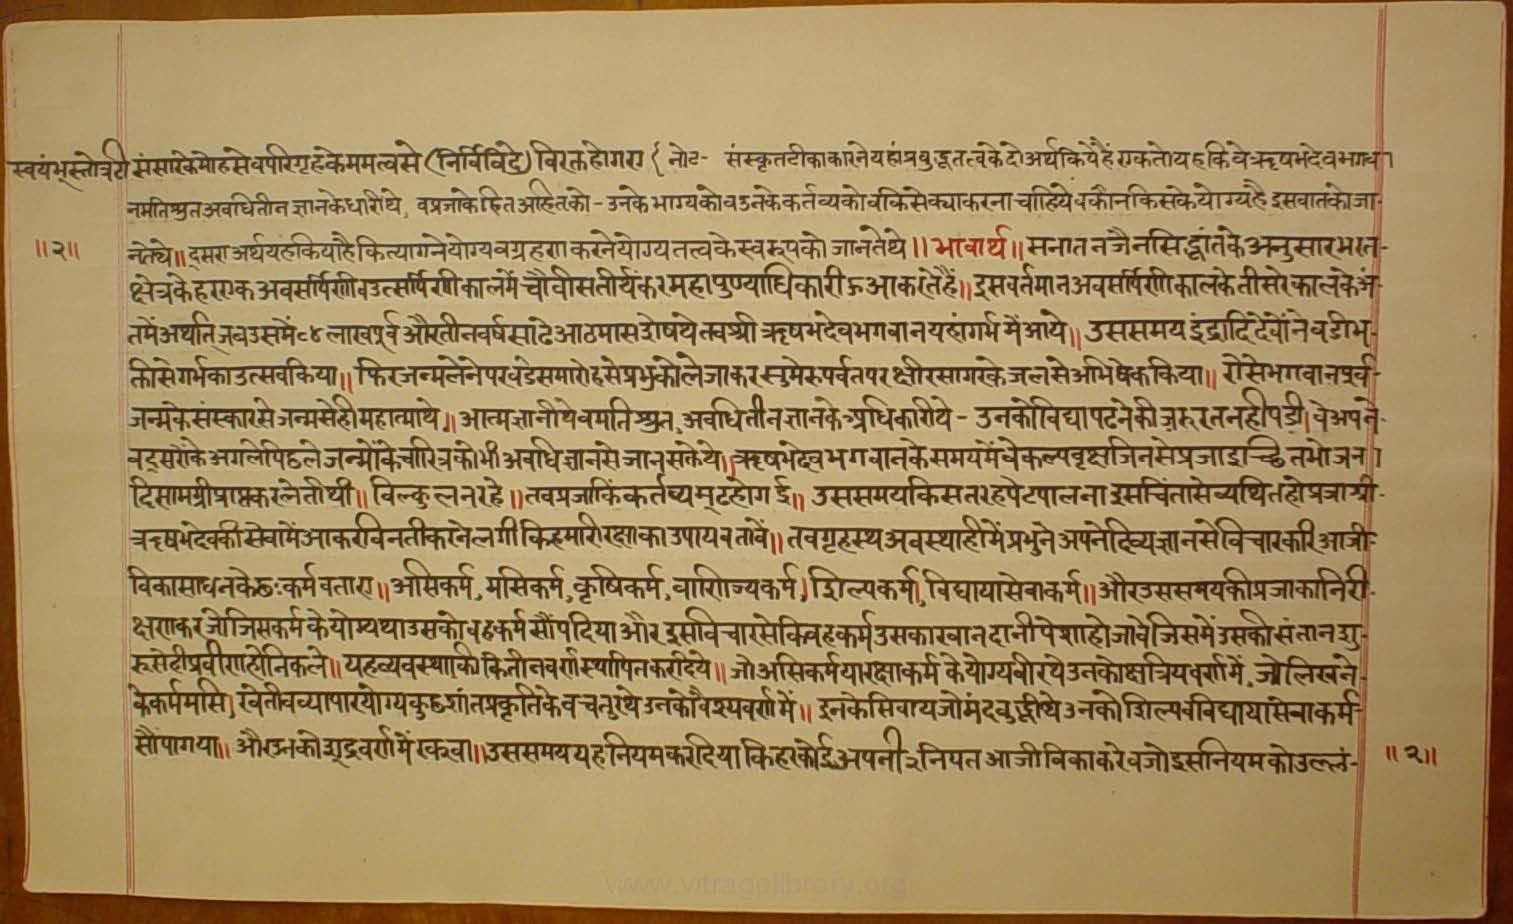 स्वयंभूस्तोत्रटी संसारके मोहसे व परिगृहके ममत्वसे (निर्विविदे) विरक्त होगए { नोट- संस्कृत टीकाकारने यहां प्रबुद्धतत्वके दो अर्थ किये हैं एक तो यह कि वे ऋषभदेव भगवा।
न मति श्रुत अवधि तीन ज्ञानके धारी थे, व प्रजाके हित अहितको - उनके भाग्यको व उनके कर्तव्यको व किसे क्या करना चाहिये व कौन किसके योग्य है इस बातको जा-
॥२॥ नते थे॥ दूसरा अर्थ यह किया है कि त्यागने योग्य व ग्रहण करने योग्य तत्वके स्वरूपको जानते थे।। भावार्थ॥ सनातन जैन सिद्धांतके अनुसार भरत-
क्षेत्रके हरएक अवसर्पिणी व उत्सर्पिणी कालमें चौवीस तीर्थंकर महा पुण्याधिकारी हुआ करते हैं॥ इस वर्तमान अवसर्पिणी कालके तीसरे कालके अं-
तमें अर्थात् जब उसमें ८४ लाख पूर्व और तीन वर्ष साढे आठ मास शेष थे तब श्री ऋषभदेव भगवान यहां गर्भमें आये॥ उस समय इंद्रादि देवोंने वडी भ-
क्तिसे गर्भका उत्सव किया॥ फिर जन्म लेनेपर वडे समारोहसे प्रभुको लेजाकर सुमेरु पर्वतपर क्षीरसागरके जलसे अभिषेक किया॥ ऐसे भगवान पूर्व-
जन्मके संस्कारसे जन्मसे ही महात्मा थे॥ आत्मज्ञानी थे व मति श्रुत, अवधि तीन ज्ञानके अधिकारी थे - उनको विद्या पढनेकी जरूरत नहीं पडी। वे अपने-
व दूसरोंके अगले पिछले जन्मोंके चारित्रको भी अवधिज्ञानसे जान सक्ते थे॥ ऋषभदेव भगवानके समयमें वे कल्पवृक्ष जिनसे प्रजा इच्छित भोजना।
दि सामग्री प्राप्त कर लेती थी॥ विल्कुल न रहे॥ तब प्रजा किंकर्तव्यमूढ होगई॥ उस समय किस तरह पेट पालना इस चिंतासे व्यथित हो प्रजा श्री-
ऋषभदेवकी सेवामें आकर विनती करने लगी कि हमारी रक्षाका उपाय बतावें॥ तब गृहस्थ अवस्थाहीमें प्रभुने अपने दिव्य ज्ञानसे विचार करि आजी-
विका साधनके छः कर्म बताए॥ असिकर्म, मसिकर्म, कृषिकर्म, वाणिज्यकर्म, शिल्पकर्म, विद्या या सेवाकर्म॥ और उस समयकी प्रजाका निरी-
क्षण कर जो जिस कर्मके योग्य था उसको वह कर्म सौंप दिया और इस विचारसे कि वह कर्म उसका खानदानी पेशा हो जावे जिसमें उसकी संतान शु-
रूसे ही प्रवीण हो निकले॥ यह व्यवस्था की कि तीन वर्ण स्थापित कर दिये॥ जो असिकर्म या रक्षाकर्मके योग्य वीर थे उनको क्षत्रिय वर्णमें, जो लिखने-
के कर्म मसि, खेती व व्यापार योग्य कुछ शांत प्रकृतिके व चतुर थे उनको वैश्य वर्णमें॥ इनके सिवाय जो मंदबुद्धी थे उनको शिल्प व विद्या या सेवाकर्म-
सौंपा गया॥ और उनको शूद्र वर्णमें रक्खा॥ उस समय यह नियम कर दिया कि हरकोई अपनी २ नियत आजीविका करे व जो इस नियमको उल्लं- ॥२॥
www.vitragelibrary.org